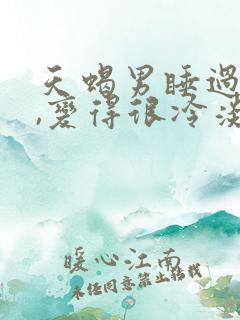 天蝎男睡过
,变得很冷淡
暖心江南
未经同意禁止转载